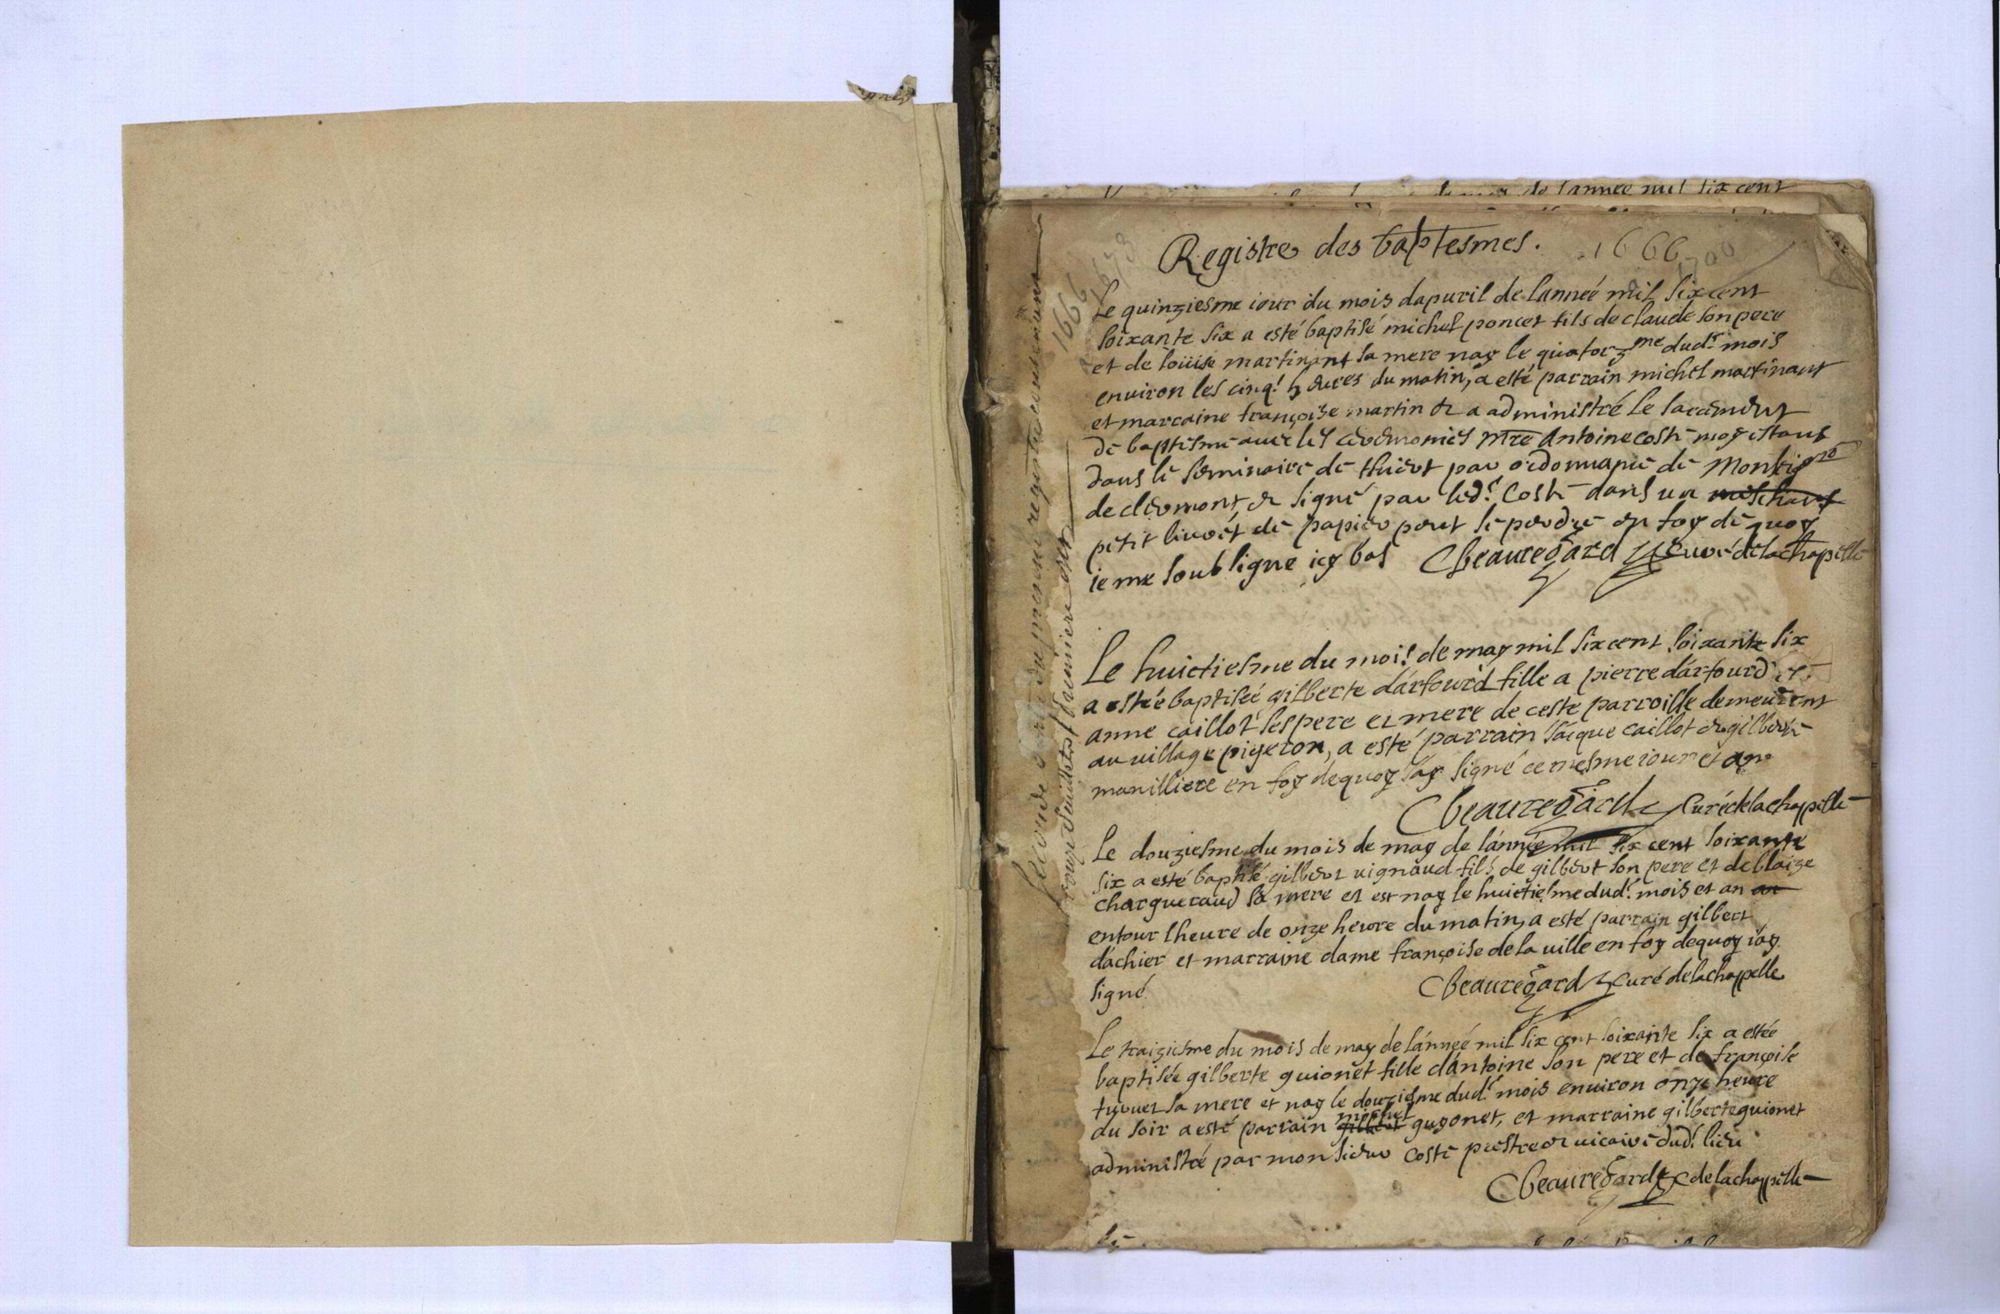 de l'année mil six cent
Registre des baptesmes. 1666
1700
1666
1673
Le quinziesme iour du mois dapuril de lanneé mil six cent
soixante six a esté baptisé michel poncet fils de claude son pere
et de louise martinant sa mere nay le quatorzme dud.t mois
enuiron les cinq heures du matin, a esté parrain michel martinant
et marraine françoise martin & a administré le sacrement
de baptesme auec les ceremonies mre Antoine coste moy estant
dans le seminaire de thiert par ordonnance de Monsigr
de clermont, & signé par led.t Coste dans un meschant
petit liuret de papier peut se perdre en foy de quoy
ie me soubsigne icy bas CBeauregard Curé de la chapelle
Le huictiesme du mois de may mil six cent soixante six
a esté baptiseé gilberte dartourd fille a pierre dartourd et
anne caillot ses pere et mere de ceste parroisse demeurent
au village pigeron, a esté parrain Iacque caillot & gilberte
manilliere en foy dequoy iay signé ce mesme iour et an
CBeauregard Curé de la chapelle
Le douziesme du mois de may de lánnée mil six cent soixante
six a esté baptisé gilbert uignaud fils de gilbert son pere et de blaize
chargueraud sa mere et est nay le huictiesme dud.t mois et an an
entour lheure de onze heure du matin, a esté parrain gilbert
dáchier et marraine dame françoise de la uille en foy dequoy iay
signé CBeauregard Curé de la chapelle
Le traiziesme du mois de may de lánneé mil six cent soixante six a estée
baptisée gilberte guionet fille dántoine son pere et de françoise
sa mere et nay le douziesme dud.t mois enuiron onze heure
michel
du soir a esté parrain gilbert guyonet, et marraine gilberte guionet
administré par monsieur coste prestre & uicaire dud.t lieu
CBeauregard C de la chapelle